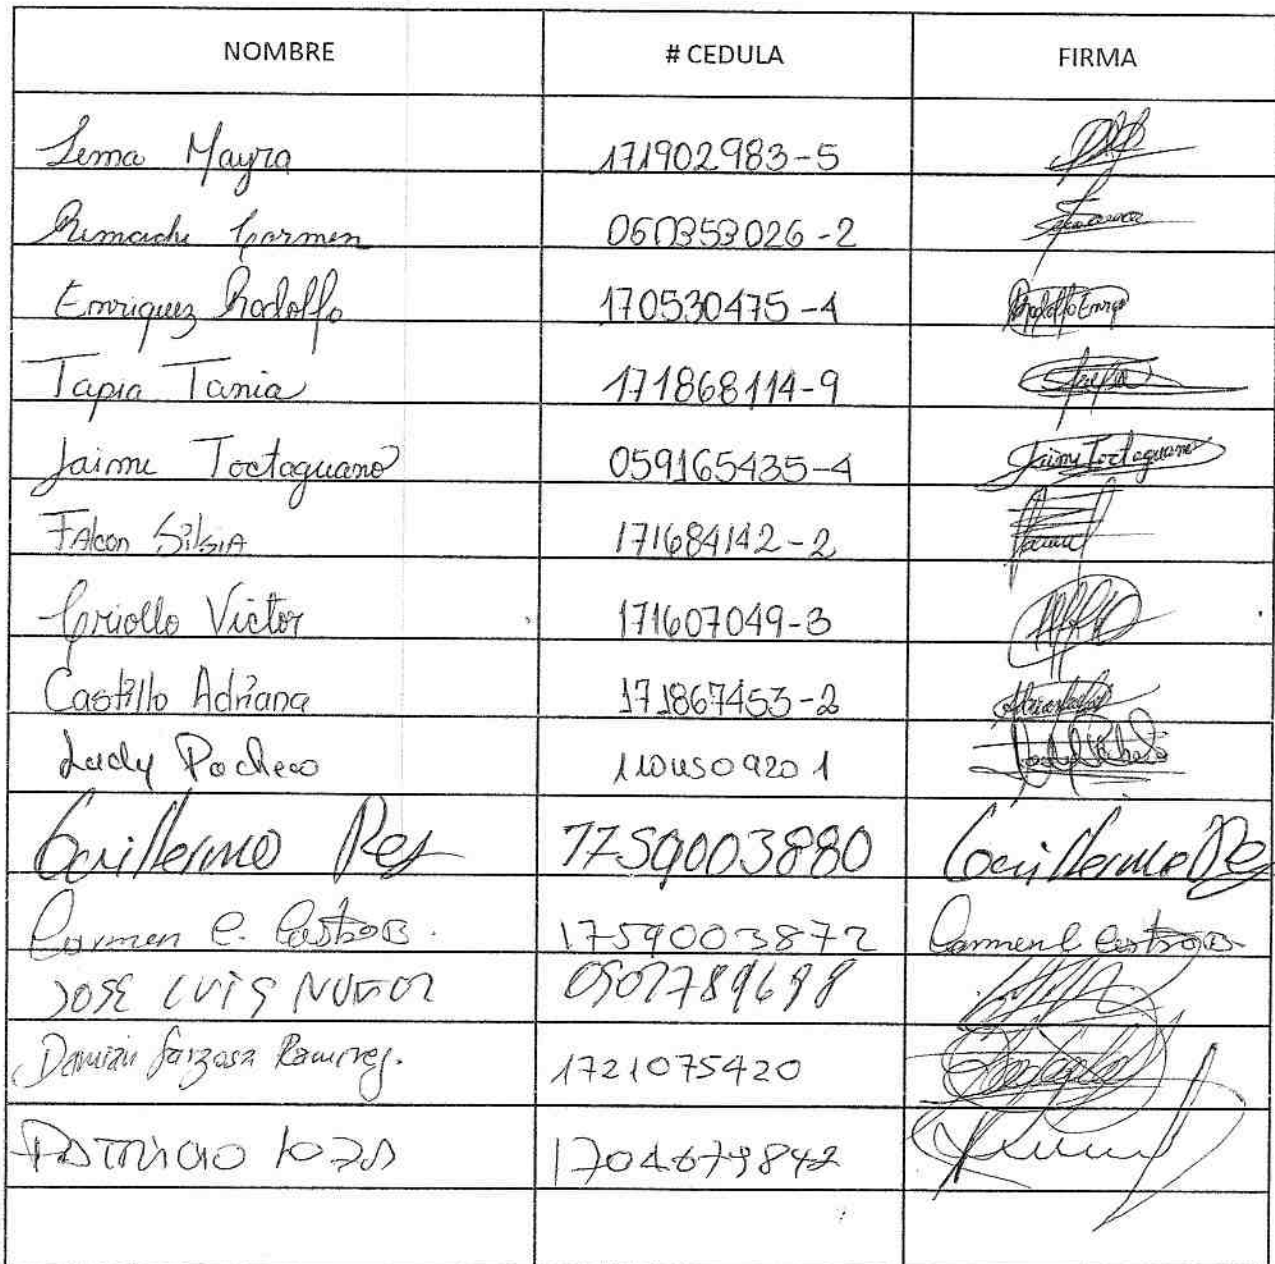 NOMBRE # CEDULA FIRMA
Lema Mayra 171902983-5
Remache Carmen 060353026-2
Enriquez Rodolfo 170530475-4 Rodolfo Enriq
Tapia Tania 171868114-9
Jaime Toctaguano 059165435-4 Jaime Toctaguano
FAlcon SilviA 171684142-2
Criollo Victor 171607049-3
Castillo Adriana 171867453-2
Lady Pacheco
Guillermo 1759003880 Guillermo
Carmen C. Castro B. 1759003872 Carmen C Castro B.
JOSE LUIS
Damián Garzosa Ramirez. 1721075420
PATRICIO 1704679842